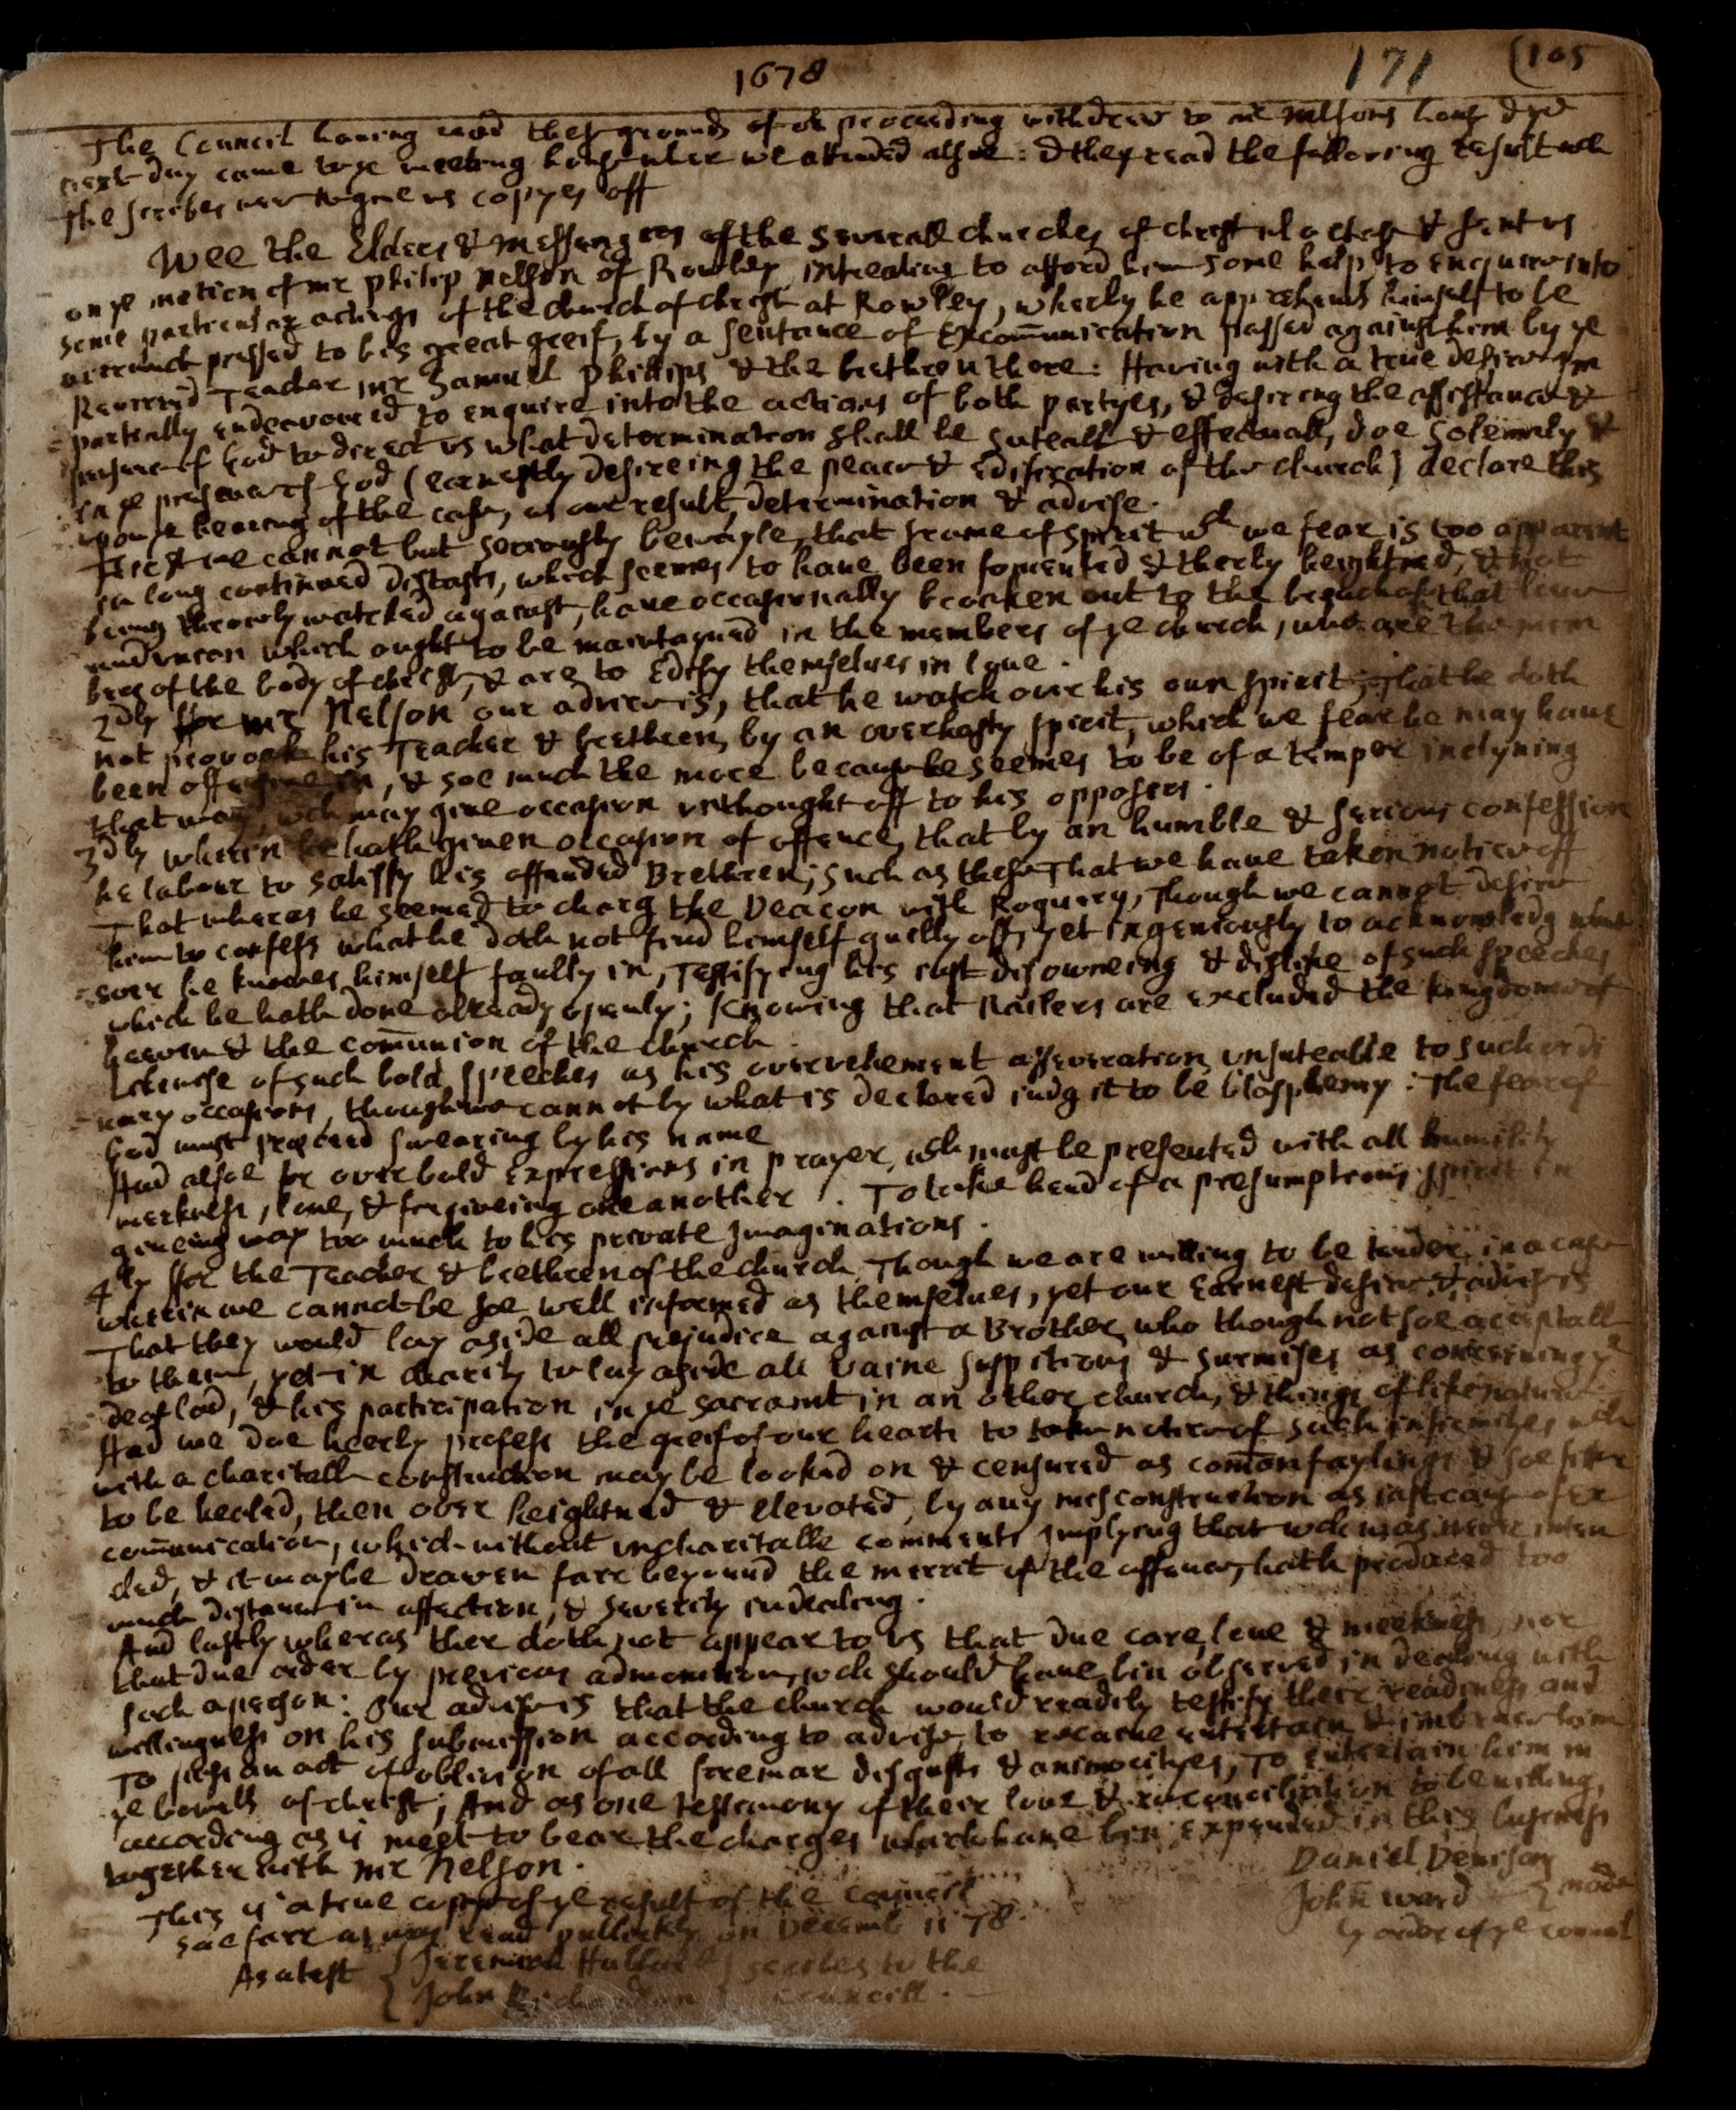 1678
171 (105
The Council having read thes grounds of oe proceeding withdrew to mr Nelsons hous & ye
next day came to ye meeting hous wher we attended alsoe: & they read the following result wch
The scribes were to give us copyes off
Wee the Elders & messengers of the severall churches of christ & sent us
on ye motion of mr philip nellson of Rowley, intreating to afford him some help to enquire into
some particular actings of the church of christ at Rowley, wherby he apprehends himself to be
very much pressed to his great greif, by a sentance of Excom̄unication passed against him by ye
Reverend Teacher mr Samuell phillips & the brethren there: Having with a true desire im
=partially endeavoured to enquire into the actions of both partyes, & desireing the assistance &
of God to direct us what determination shall be suteable & effectuall, doe solemnly &
in ye presence of God (earnestly desireing the peace & Edification of the church) declare this
upon ye hearing of the case, as our result, determination & advise.
First we cannot but seriously bewayle, that frame of spirit wch we fear is too apparent
in long continued distasts, which seemes to have been fomented & therby heightned, & not
being throwly watched against, have occasionally broaken out to the breach of that love
and union which ought to be maintayned in the members of ye church, who are the mem
bres of the body of christ, & are to Edify themselves in love.
2dly ffor mr Nelson our advice is, that he watch over his own spirit, that he doth
not provoak his Teacher & brethren, by an overhasty spirit, which we fear he may have
been , & soe much the more because he seemes to be of a temper inclyning
that way, wch may give occasion unthought off to his opposers.
3dly wherin he hath given occasion of offence, that by an humble & serious confession
he labour to satisfy his offended Brethren; such as these That we have taken notice off
That wheras he seemed to charg the Deacon with Roguery, Though we cannot desire
him to confess what he doth not find himself guilty off, yet ingeniously to acknowledg what
soevr he knowes himself faulty in, Testifying his just disowneing & dislike of such speeches
which he hath done already openly; Knowing that Railers are excluded the kingdome of
heaven & the com̄union of the church.
Likewise of such bold speeches as his overvehement asseveration, unsuteable to such ordi
=nary occasions, though we cannot by what is declared judg it to be blasphemy: The fear of
God must preceed swearing by his name
And alsoe for overbold expressions in prayer, wch must be presented with all humility
meekness, love, & forgiveing one another. To take heed of a presumptious spirit in
giveing way too much to his private Imaginations.
4ly ffor the Teacher & brethren of the church, Though we are willing to be tender, in a case
wherin we cannot be soe well informed as themselves, yet our earnest desire & advise is
That they would lay aside all prejudice against a Brother, who though not soe acceptable
to them, yet in charity to lay aside all vaine suspitions & surmises as concerning ye
, & his participation in ye sacramt in an other church, & things of like nature
And we doe heerby profess the greif of our hearts to take notice of such infirmityes wch
with a charitable construction may be looked on & censured as com̄on faylings & soe fitter
to be healed, then over heightned & elevated, by any misconstruction as just caus of ex
com̄unication, which without uncharitable comments Implying that wch was never inten
ded, & it may be drawen farr beyound the merrit of the offence, hath produced too
much distance in affection, & severity in dealing.
And lastly wheras ther doth not appear to us that due care, love & meekness, nor
that due order by previous admonition, wch should have bin observed in dealing with
such a person: Our advise is that the church would readily testify their readiness and
willingness on his submission according to advise to receive entertain & imbrace him
To pass an act of oblivion of all formar disgusts & animocityes, To entertain him in
ye bowells of christ; And as one testimony of their love & reconciliation to be willing,
according as is meet to bear the charges which have bin expended in this busyness
together with mr Nelson.
Daniel Denison
John Ward } modr
by order of ye council
This is a true coppy of ye result of the councell
soe farr as was read publickly on Decemb 11 78.
As atest { Jeremiah Hubbard } scribes to the
{ John Richardson } councill.